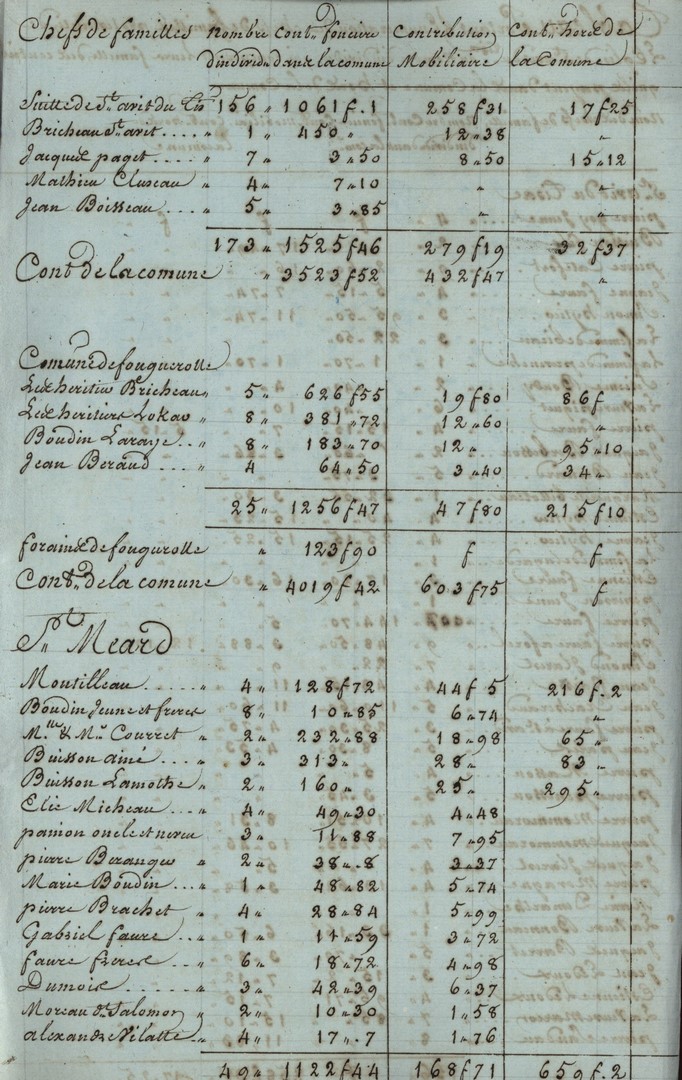 Chefs de familles nombre d'individu contn. fonciere dans la comune Contribution Mobiliaire Contn. hors de la Comune
Suitte de St. avit du 156 " 1061 f. 1 258 f 31 17 f 25
Bricheau St. avit .... " 1 " 450 " 12 " 38 "
Jacques paget .... " 7 " 3 " 50 8 " 50 15 " 12
Mathieu Cluseau " 4 " 7 " 10 " "
Jean Boisseau .... " 5 " 3 " 85 " "
173 " 1525 f 46 279 f 19 32 f 37
Cont. de la comune " 3523 f 52 432 f 47 "
Comune de fouguerolle
Les heritiers Bricheau " 5 " 626 f 55 19 f 80 86 f
Les heritiers Lokao " 8 " 381 " 72 12 " 60 "
Boudin Laraye .. " 8 " 183 " 70 12 " 95 " 10
Jean Beraud .... " 4 64 " 50 3 " 40 34 "
25 " 1256 f 47 47 f 80 215 f 10
forains de fouguerolle " 123 f 90 f f
Contn. de la comune " 4019 f 42 603 f 75 f
St. Meard
Moutilleau ..... " 4 " 128 f 72 44 f 5 216 f. 2
Boudin Jeune et freres 8 " 10 " 85 6 " 74 "
M.lle & Mr. Courret " 2 " 232 " 88 18 " 98 65 "
Buisson ainé ... " 3 " 313 " 28 " 83 "
Buisson Lamothe " 2 " 160 " 25 " 295 "
Elie Micheau .... " 4 " 49 " 30 4 " 48
panion oncle et neveu 3 " 11 " 88 7 " 95
pierre Beranger " 2 " 38 " . 8 3 " 37
Marie Boudin ... " 1 " 48 " 82 5 " 74
pierre Brachet " 4 " 28 " 84 5 " 99
Gabriel faure .. " 1 " 11 " 59 3 " 72
faure freres ... " 6 " 18 " 72 4 " 98
Dumois ..... " 3 " 42 " 39 6 " 37
Moreau dt. Salomon " 2 " 10 " 30 1 " 58
alexandre Vilatte " 4 " 17 " . 7 1 " 76
49 " 1122 f 44 168 f 71 659 f. 2